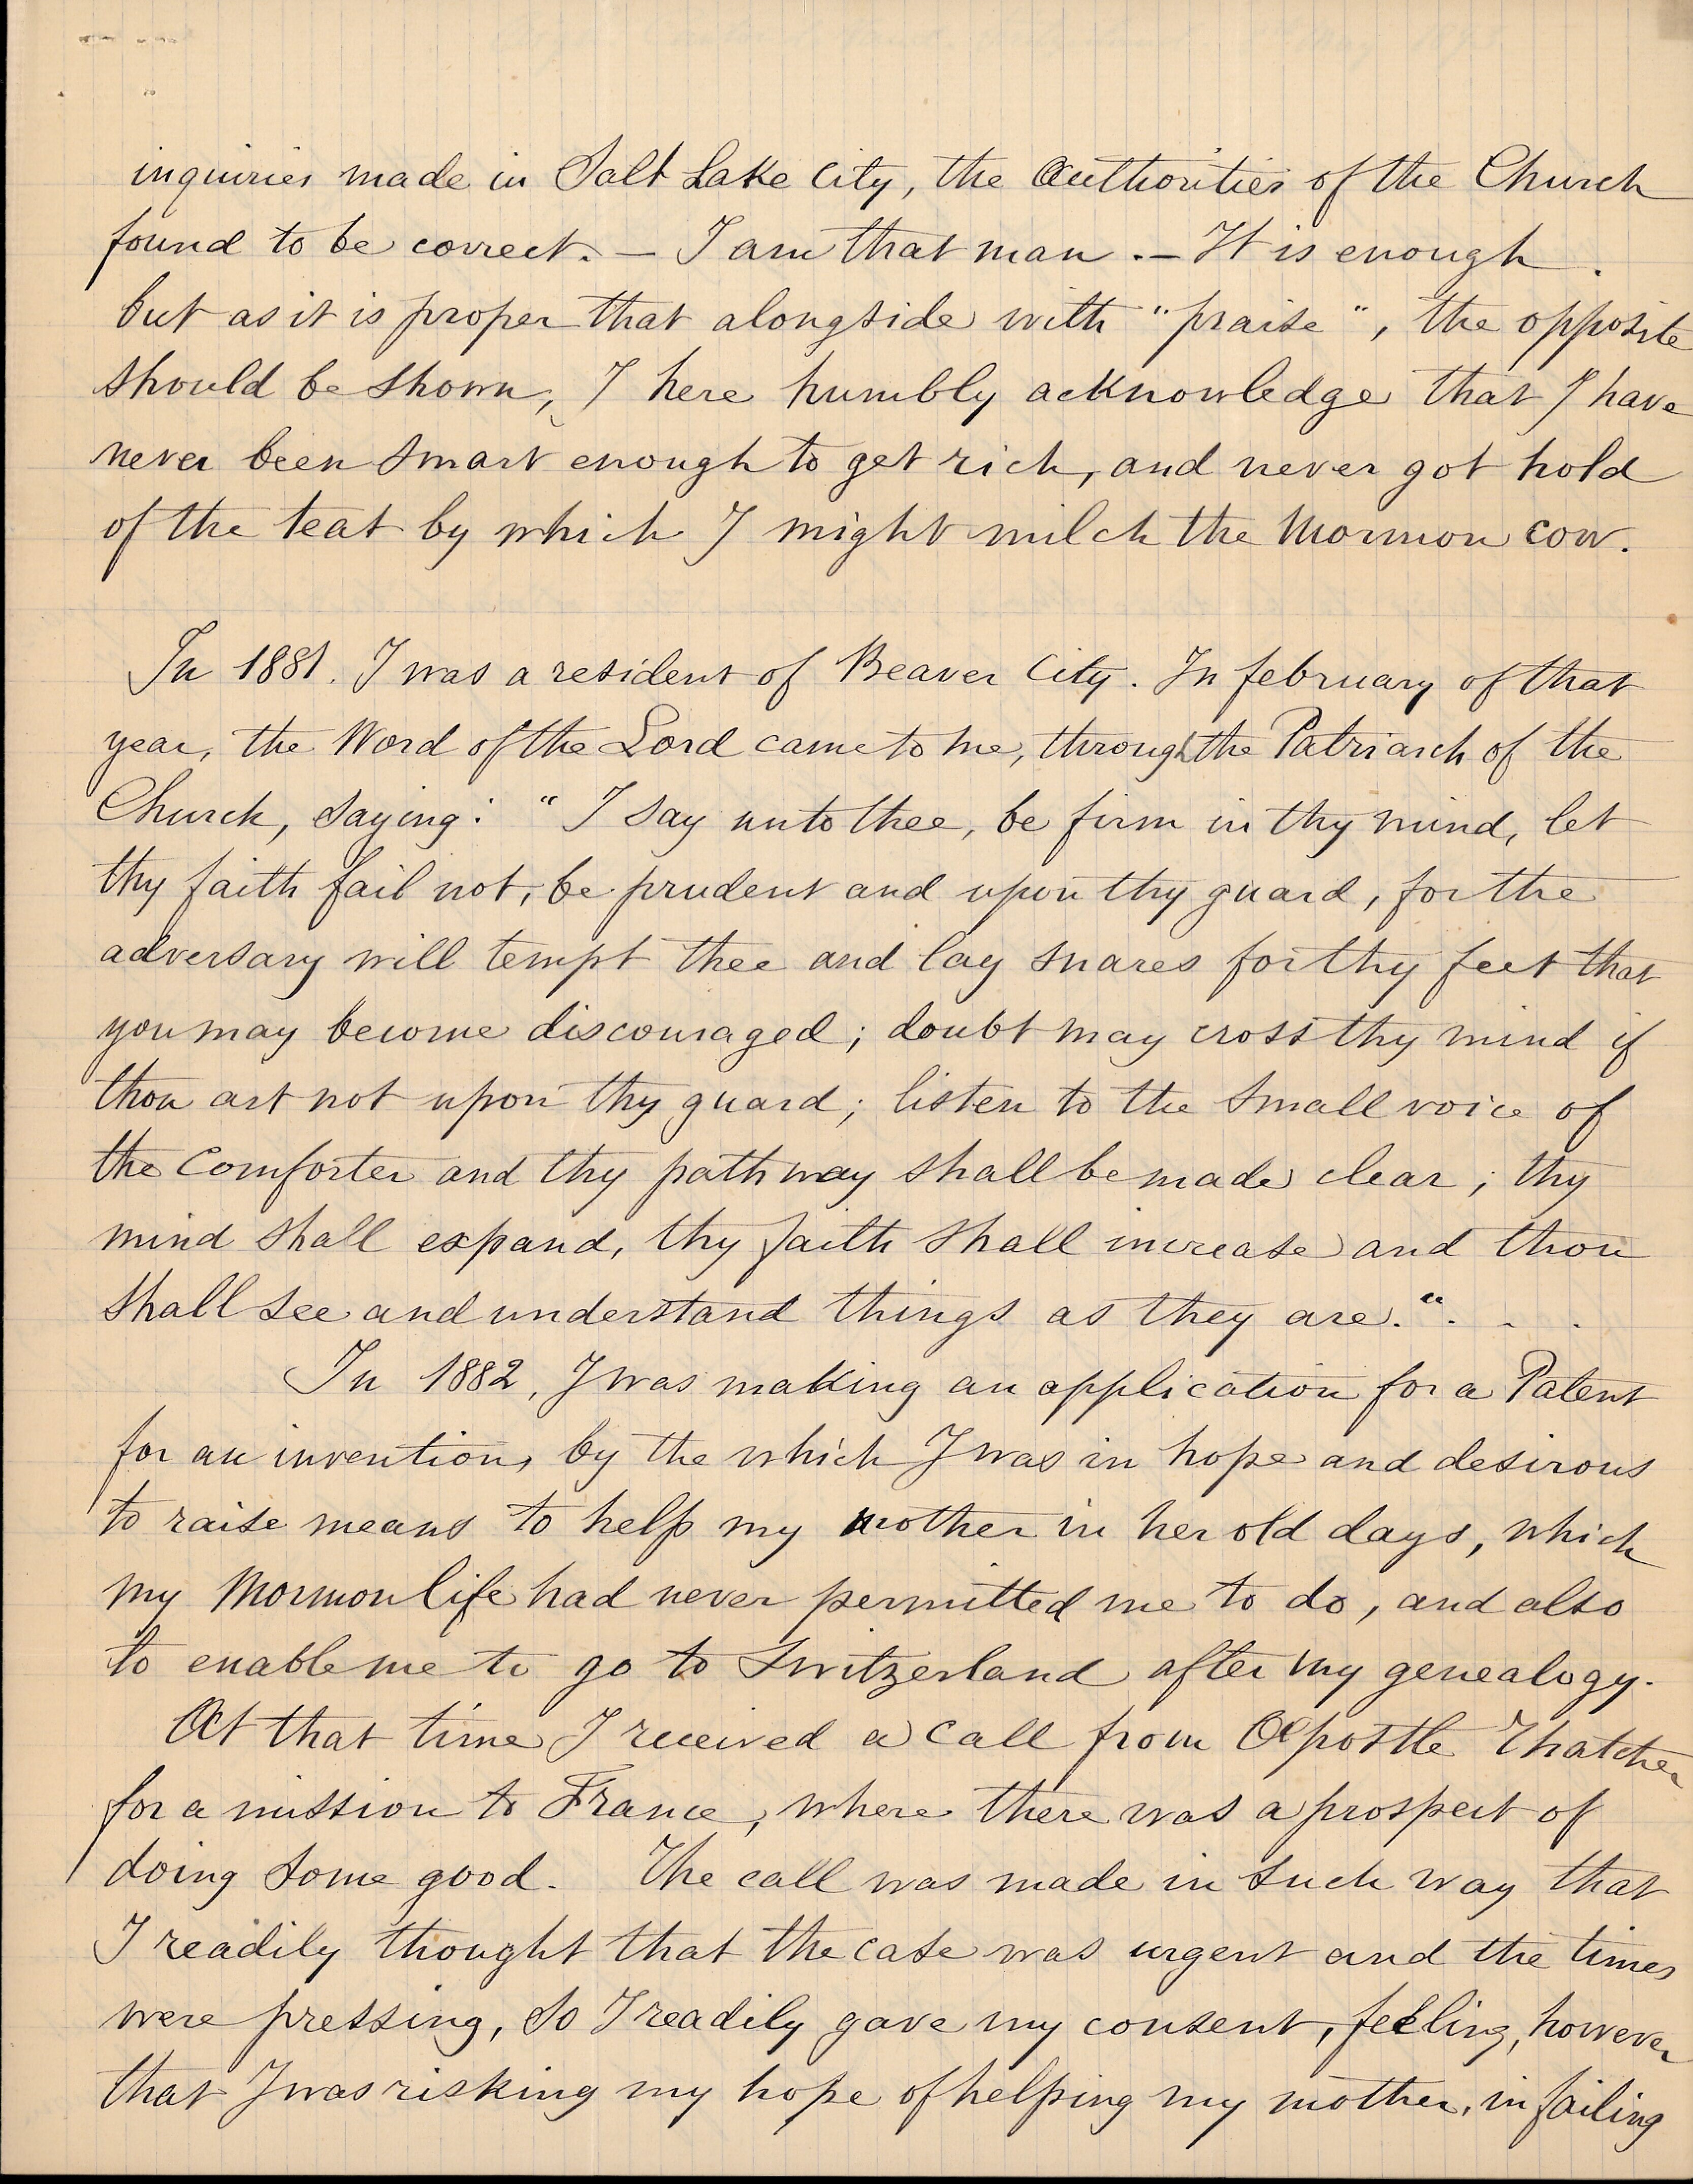 inquiries made in Salt Lake City, the Authorities of the Church
found to be correct. — I am that man. — It is enough.
but as it is proper that alongside with "praise", the opposite
should be shown, I here humbly acknowledge that I have
never been smart enough to get rich, and never got hold
of the teat by which I might milch the Mormon cow.
In 1881. I was a resident of Beaver City. In february of that
year, the Word of the Lord came to me, through the Patriarch of the
Church, saying: "I say unto thee, be firm in thy mind, let
thy faith fail not, be prudent and upon thy guard, for the
adversary will tempt thee and lay snares for thy feet that
you may become discouraged; doubt may cross thy mind if
thou art not upon thy guard; listen to the small voice of
the Comforter and thy pathway shall be made clear; thy
mind shall expand, thy faith shall increase and thou
shall see and understand things as they are." . . .
In 1882, I was making an application for a Patent
for an invention, by the which I was in hope and desirous
to raise means to help my mother in her old days, which
my Mormon life had never permitted me to do, and also
to enable me to go to Switzerland after my genealogy.
At that time I received a call from Apostle Thatcher
for a mission to France, where there was a prospect of
doing some good. The call was made in such way that
I readily thought that the case was urgent and the times
were pressing, so I readily gave my consent, feeling, however
that I was risking my hope of helping my mother, in failing